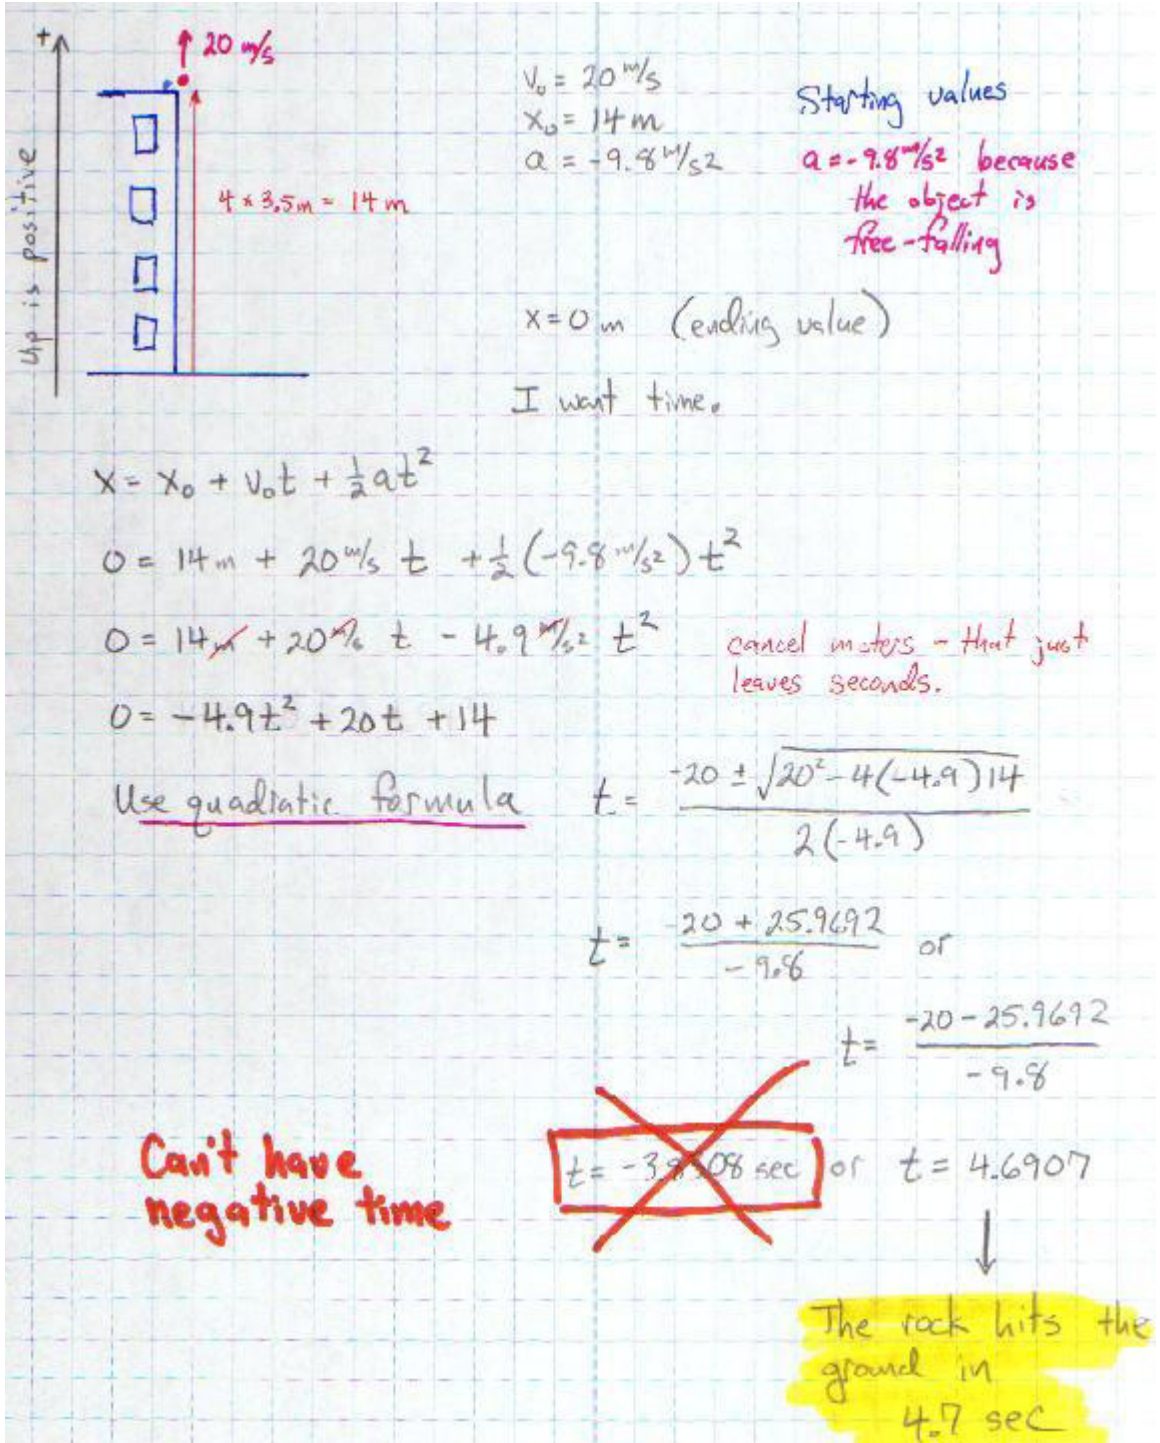 +
20 m/s
Up is positive
4 × 3.5m = 14 m
V₀ = 20 m/s
X₀ = 14 m
a = -9.8 m/s2
Starting values
a = -9.8 m/s2 because
the object is
free-falling
x = 0 m (ending value)
I want time.
X = X₀ + V₀t + ½at²
0 = 14m + 20 m/s t + ½(-9.8 m/s2) t²
0 = 14m + 20 m/s t - 4.9 m/s2 t²
cancel meters - that just
leaves seconds.
0 = -4.9t² + 20t + 14
Use quadratic formula
t = -20 ± √20² - 4(-4.9)14
2(-4.9)
t = -20 + 25.9692
-9.8
or
t = -20 - 25.9692
-9.8
Can't have
negative time
t = sec or t = 4.6907
The rock hits the
ground in
4.7 sec